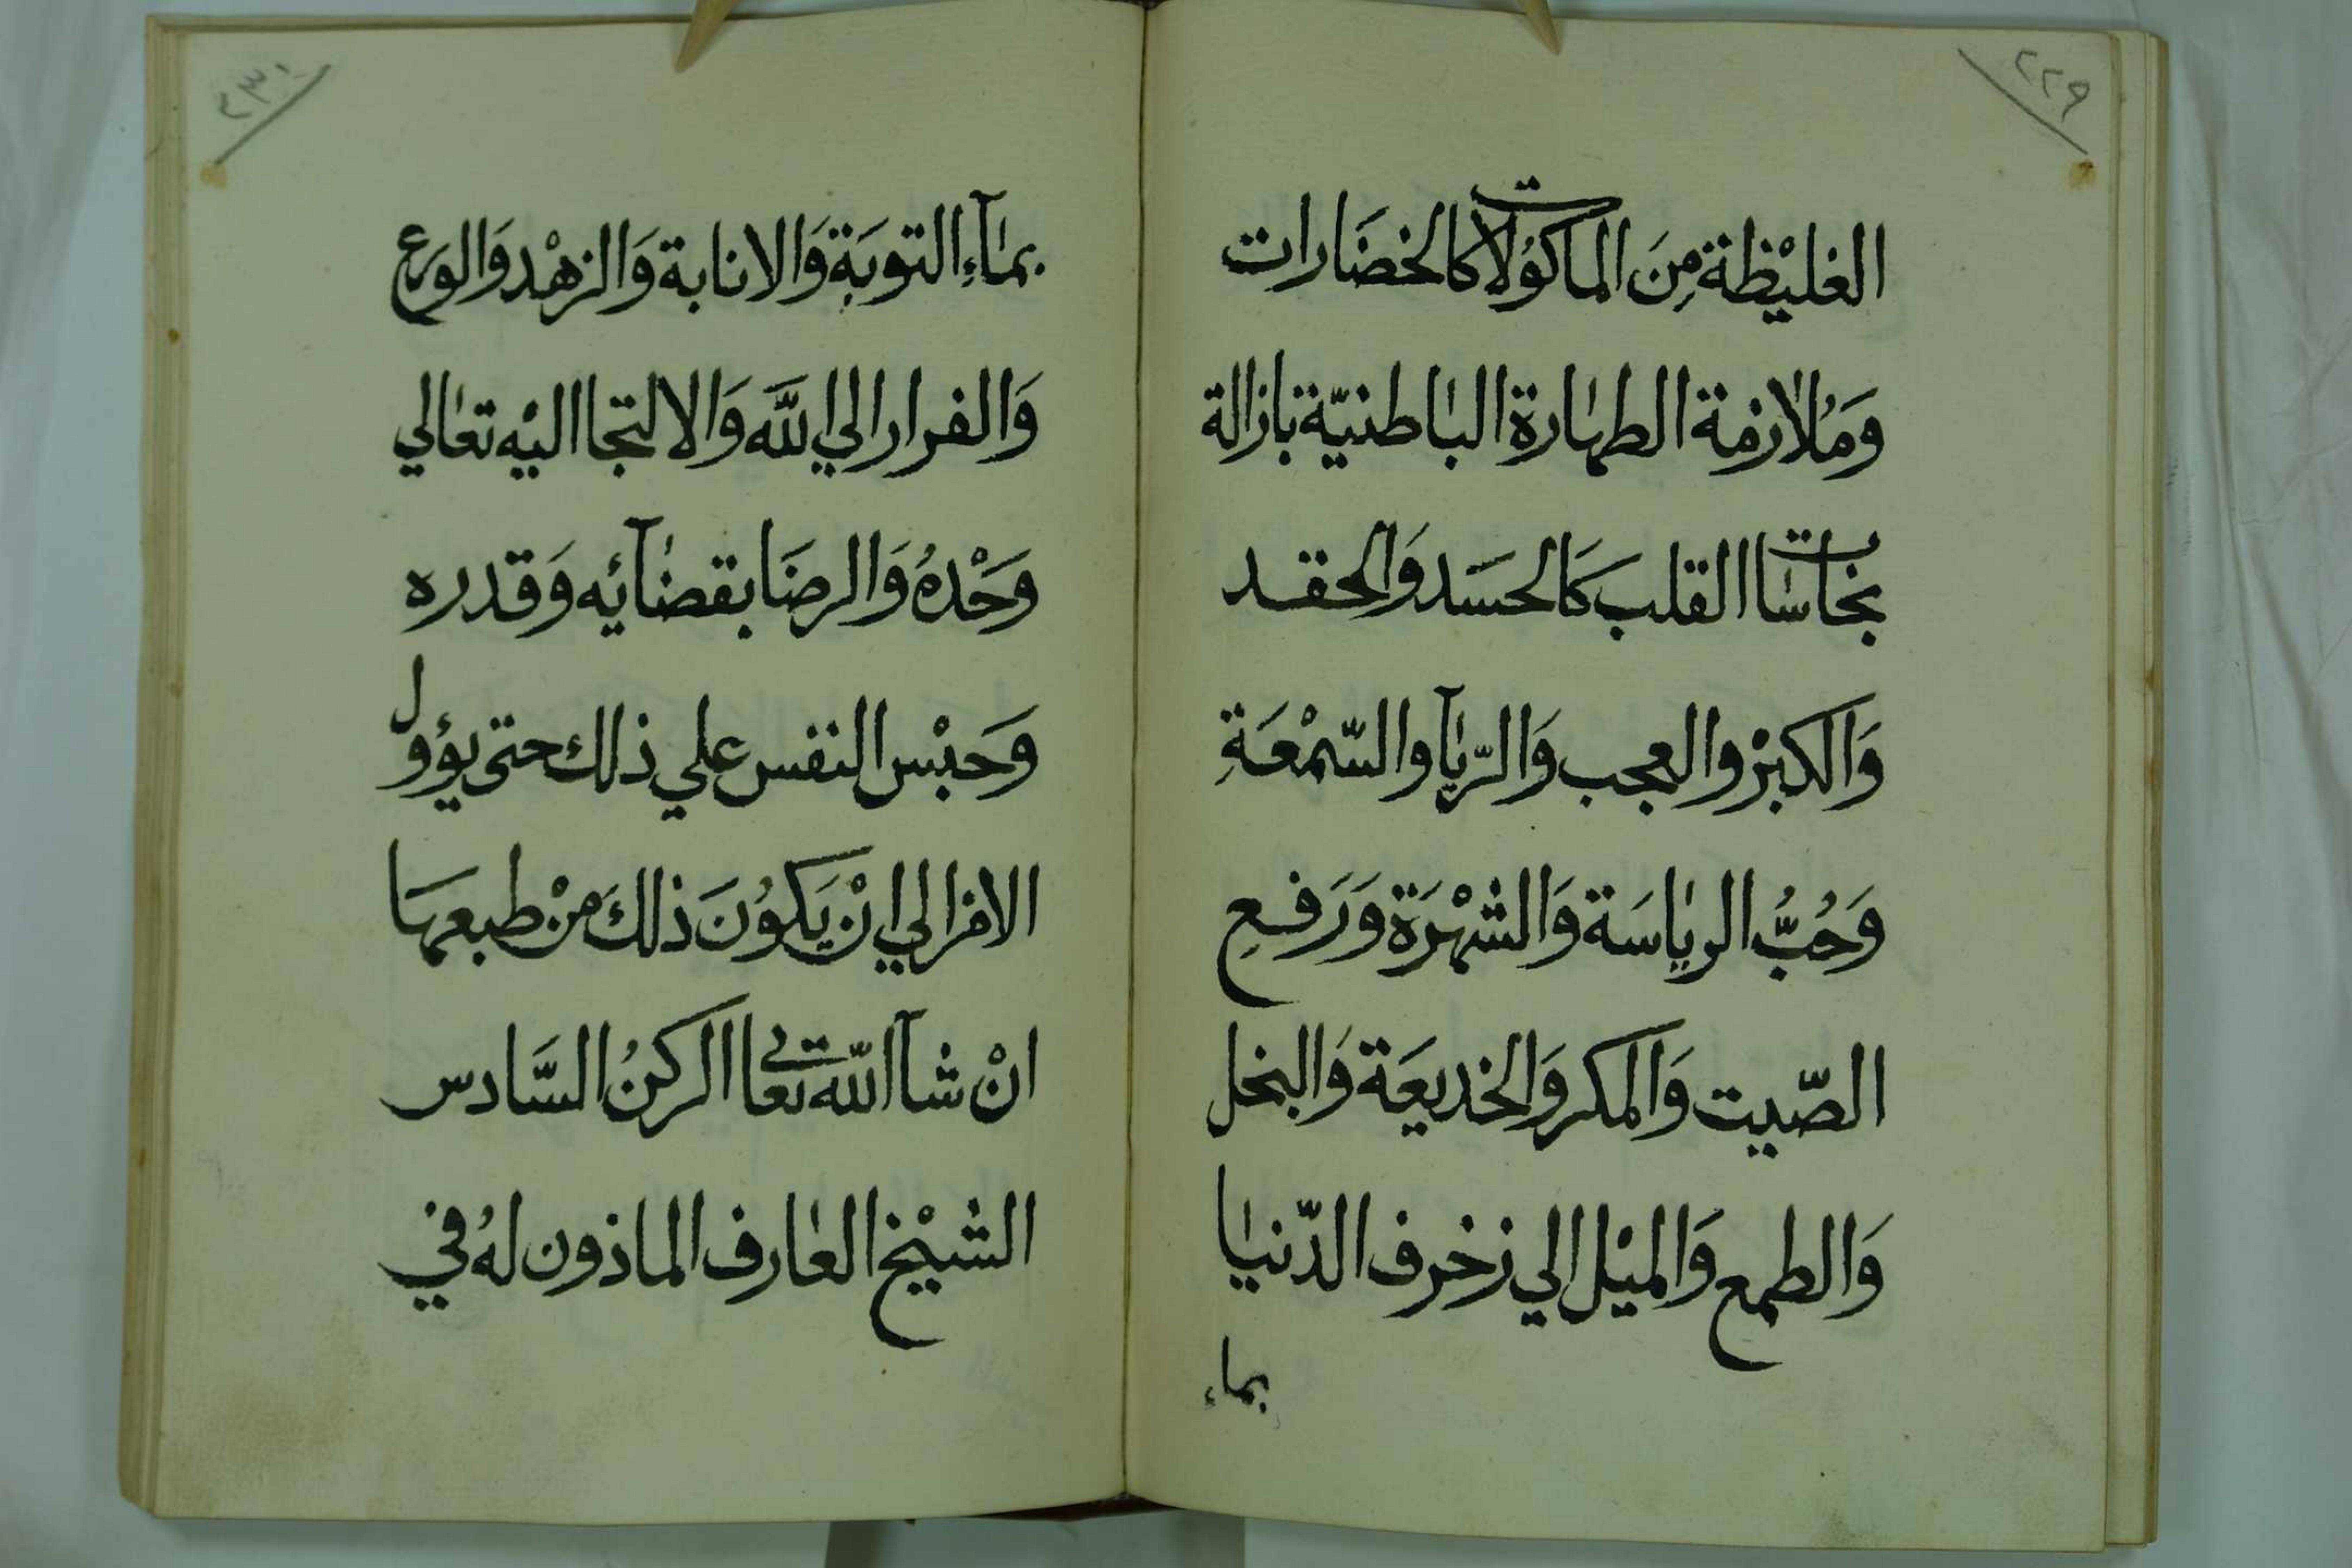 ٢٢٩
الغليْظة مِنَ الماكوُلات كالخضَارات
وَمُلازمة الطهارة الباطنيّة بازالة
نجاسات القلب كَالحسَد وَالحقد
وَالكبْر والعجب وَالرّيآ والسّمْعَةِ
وَحُبُّ الرياسَة وَالشهْرَة وَرَفعِ
الصّيت وَالمكر وَالخديعَة وَالبخل
وَالطمع وَالميْل الي زخرف الدّنيا
بماء
٢٣٠
بمآءِ التوبَة وَالانابة وَالزهْد وَالورَع
وَالفرار الي اللَّه وَالالتجا اليْه تعالي
وَحْدهُ وَالرضَا بقضآئه وَقدره
وَحبْس النفس علي ذلك حتى يؤول
الامر الي انْ يَكوُنَ ذلكَ منْ طبعهَا
انْ شآ اللّه تعالى الركنُ السَّادس
الشيْخ العارف الماذون لهُ في